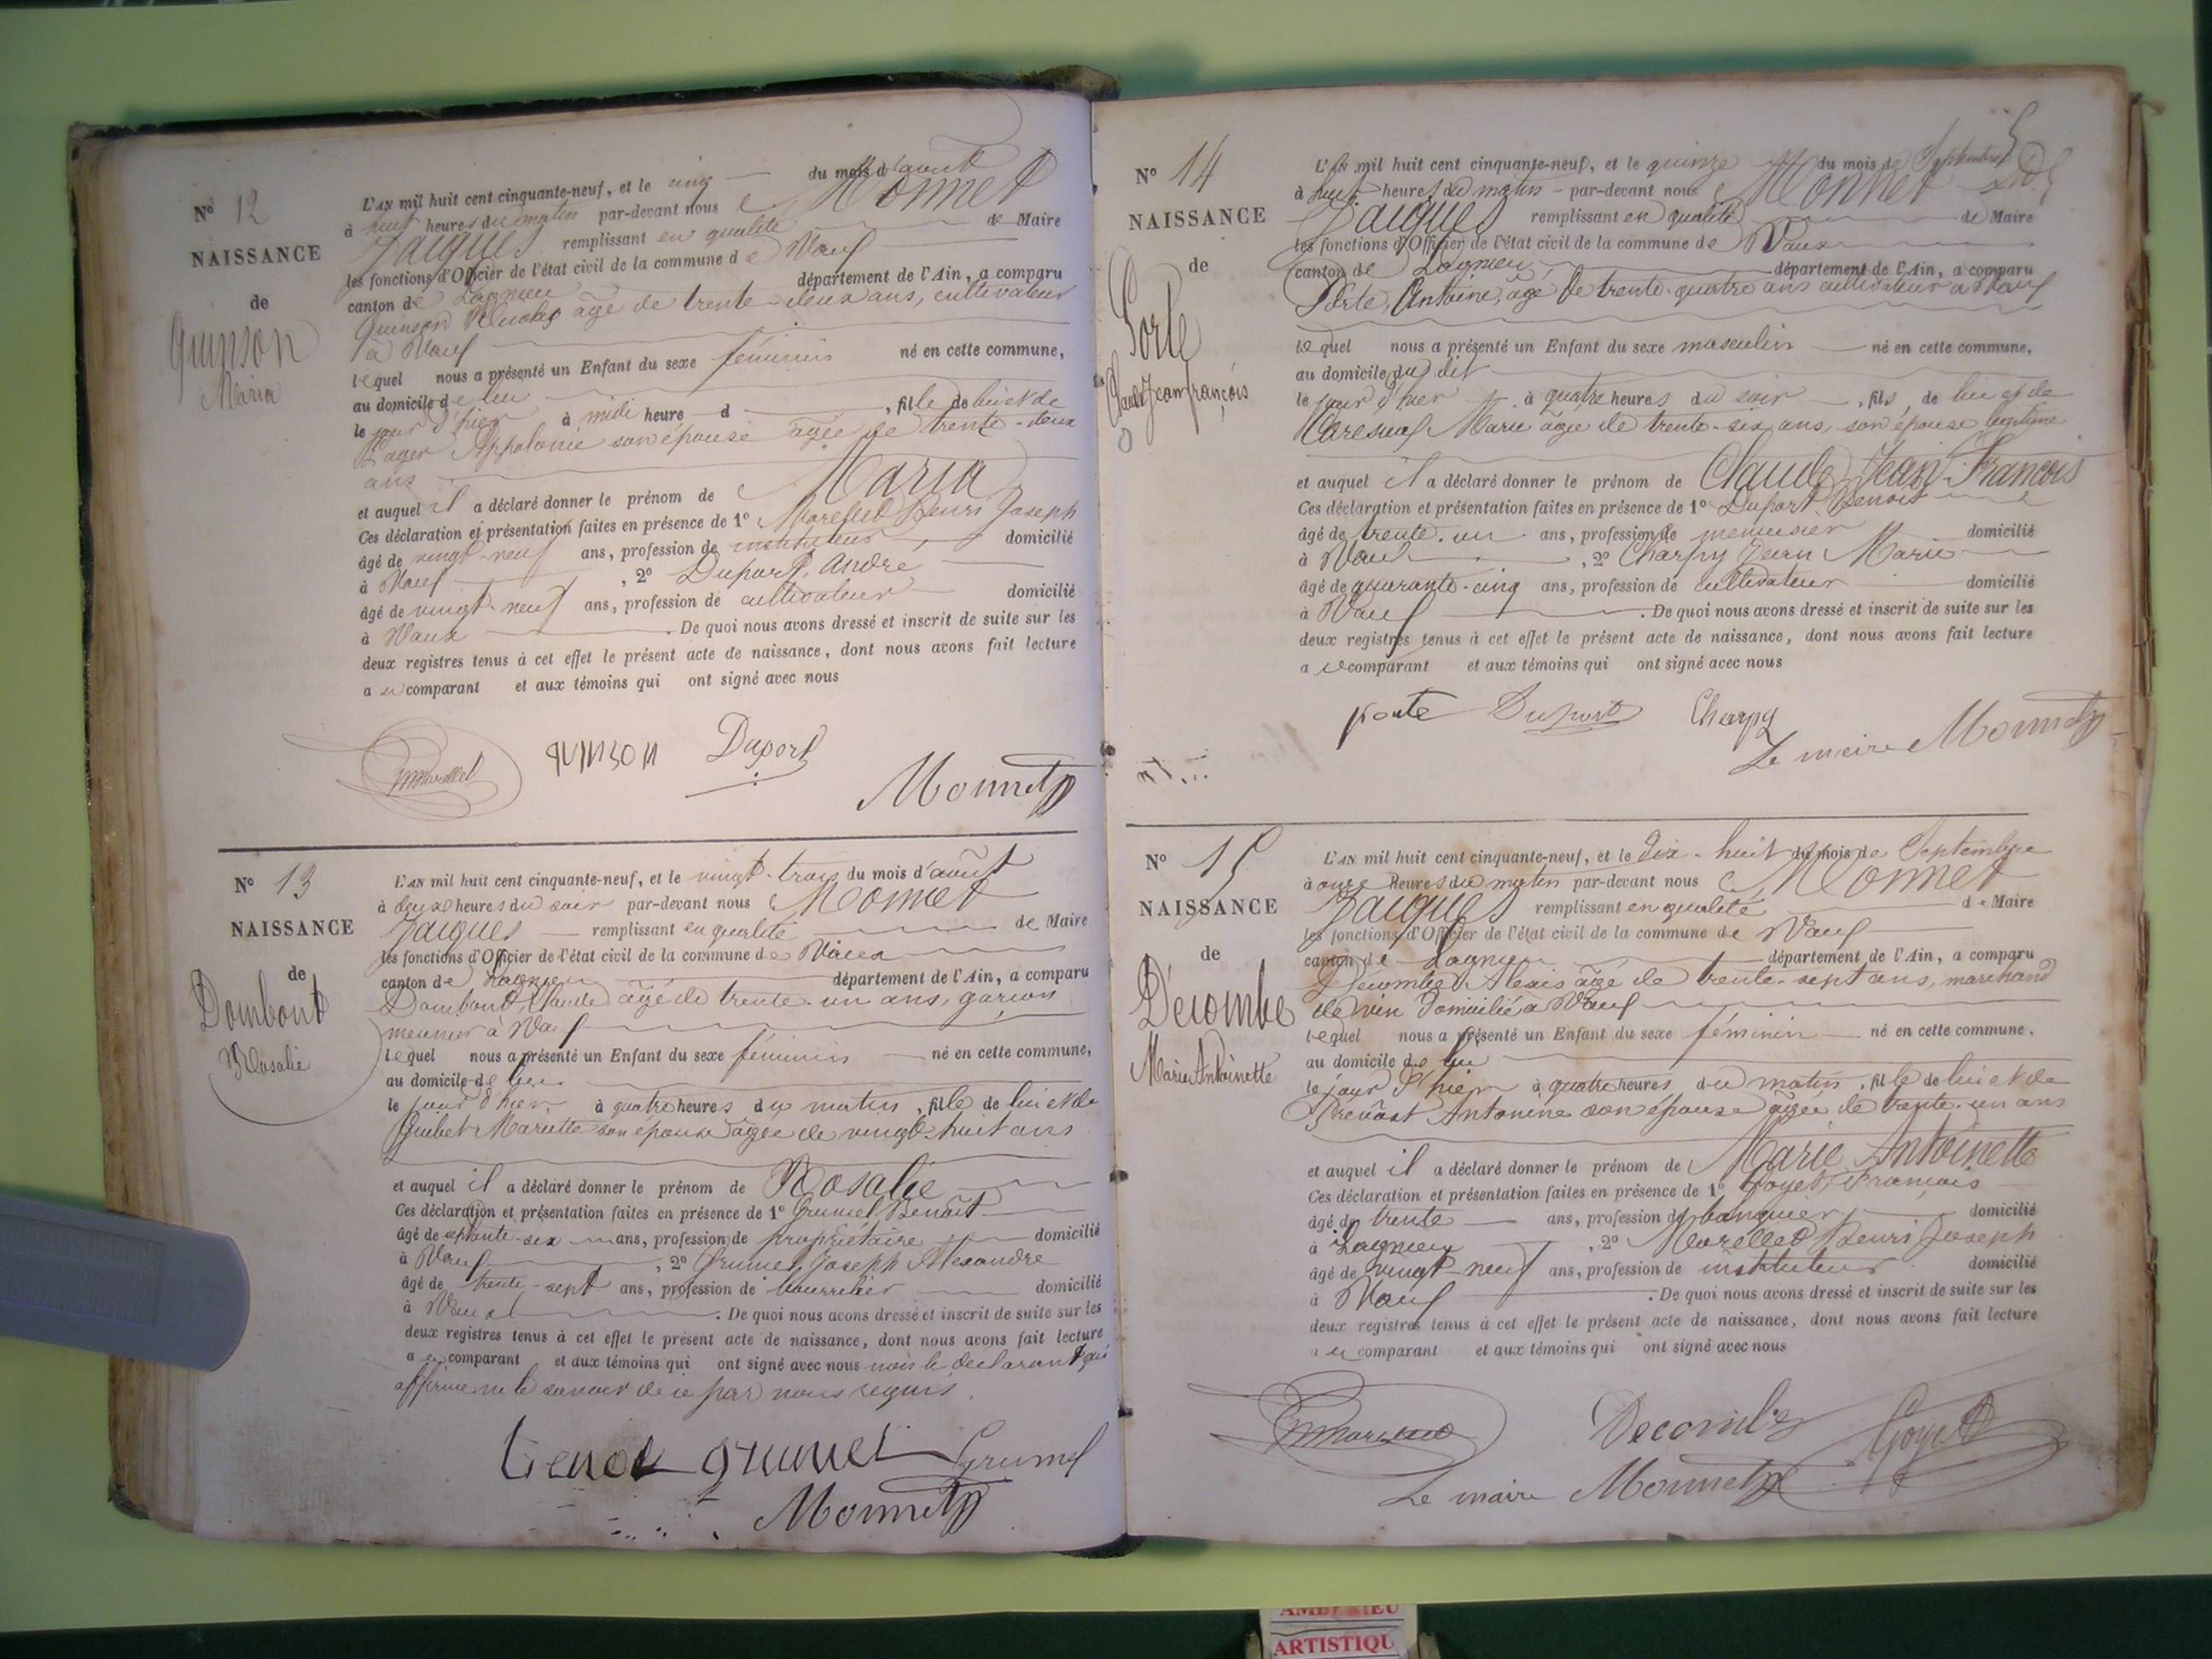 Nº 12
NAISSANCE
de
Quinson
Maria
L'AN mil huit cent cinquante-neuf, et le cinq du mois d'août
à huit heures du matin par-devant nous Monnet
Jacques remplissant en qualité de Maire
les fonctions d'Officier de l'état civil de la commune de Vaux
canton de Lagnieu département de l'Ain, a comparu
Quinson âgé de trente-deux ans, cultivateur
à Vaux
lequel nous a présenté un Enfant du sexe féminin né en cette commune,
au domicile de lui
le jour d'hier à midi heure d , fille de lui et de
Appolonie son épouse âgée de trente-deux
ans
et auquel il a déclaré donner le prénom de Maria
Ces déclaration et présentation faites en présence de 1º Morellet Henri Joseph
âgé de vingt-neuf ans, profession de instituteur domicilié
à Vaux , 2º Duport, André
âgé de vingt-neuf ans, profession de cultivateur domicilié
à Vaux . De quoi nous avons dressé et inscrit de suite sur les
deux registres tenus à cet effet le présent acte de naissance, dont nous avons fait lecture
a comparant et aux témoins qui ont signé avec nous
Morellet QUINSON Duport
Monnet
Nº 13
NAISSANCE
de
Dombout
Rosalie
L'AN mil huit cent cinquante-neuf, et le vingt-trois du mois d'août
à deux heures du soir par-devant nous Monnet
Jacques remplissant en qualité de Maire
les fonctions d'Officier de l'état civil de la commune de Vaux
canton de Lagnieu département de l'Ain, a comparu
Dombout, Claude âgé de trente-un ans, garçon
meunier à Vaux
lequel nous a présenté un Enfant du sexe féminin né en cette commune,
au domicile de lui
le jour d'hier à quatre heures du matin, fille de lui et de
Guibet Mariette son épouse âgée de vingt-huit ans
et auquel il a déclaré donner le prénom de Rosalie
Ces déclaration et présentation faites en présence de 1º Grumel Benoit
âgé de septante-six ans, profession de propriétaire domicilié
à Vaux , 2º Grumel Joseph Alexandre
âgé de trente-sept ans, profession de bourrelier domicilié
à Vaux . De quoi nous avons dressé et inscrit de suite sur les
deux registres tenus à cet effet le présent acte de naissance, dont nous avons fait lecture
a comparant et aux témoins qui ont signé avec nous non le déclarant qui
affirme ne le savoir de ce par nous requis.
benoi grumel Grumel
Monnet
Nº 14
NAISSANCE
de
Porte
Claude Jean françois
L'AN mil huit cent cinquante-neuf, et le quinze du mois de Septembre
à huit heures du matin par-devant nous Monnet
Jacques remplissant en qualité de Maire
les fonctions d'Officier de l'état civil de la commune de Vaux
canton de Lagnieu département de l'Ain, a comparu
Porte, Antoine, âgé de trente-quatre ans cultivateur à Vaux
lequel nous a présenté un Enfant du sexe masculin né en cette commune,
au domicile du dit
le jour d'hier à quatre heures du soir , fils de lui et de
Marie âgée de trente-six ans, son épouse légitime
et auquel il a déclaré donner le prénom de Claude Jean-François
Ces déclaration et présentation faites en présence de 1º Duport Benoit
âgé de trente-un ans, profession de menuisier domicilié
à Vaux , 2º Charpy Jean Marie
âgé de quarante-cinq ans, profession de cultivateur domicilié
à Vaux . De quoi nous avons dressé et inscrit de suite sur les
deux registres tenus à cet effet le présent acte de naissance, dont nous avons fait lecture
a comparant et aux témoins qui ont signé avec nous
porte Duport Charpy
Le maire Monnet
Nº 15
NAISSANCE
de
Décombe
Marie Antoinette
L'AN mil huit cent cinquante-neuf, et le dix-huit du mois de Septembre
à onze heures du matin par-devant nous Monnet
Jacques remplissant en qualité de Maire
les fonctions d'Officier de l'état civil de la commune de Vaux
canton de Lagnieu département de l'Ain, a comparu
Décombe Alexis âgé de trente-sept ans, marchand
de vin domicilié à Vaux
lequel nous a présenté un Enfant du sexe féminin né en cette commune.
au domicile de lui
le jour d'hier à quatre heures du matin, fille de lui et de
Prevost Antonine son épouse âgée de trente-un ans
et auquel il a déclaré donner le prénom de Marie Antoinette
Ces déclaration et présentation faites en présence de 1º Goyet, François
âgé de trente ans, profession de banquier domicilié
à Lagnieu , 2º Morellet Henri Joseph
âgé de vingt-neuf ans, profession de instituteur domicilié
à Vaux . De quoi nous avons dressé et inscrit de suite sur les
deux registres tenus à cet effet le présent acte de naissance, dont nous avons fait lecture
a comparant et aux témoins qui ont signé avec nous
Decombe Goyet
Le maire Monnet
AMBERIEU
ARTISTIQU